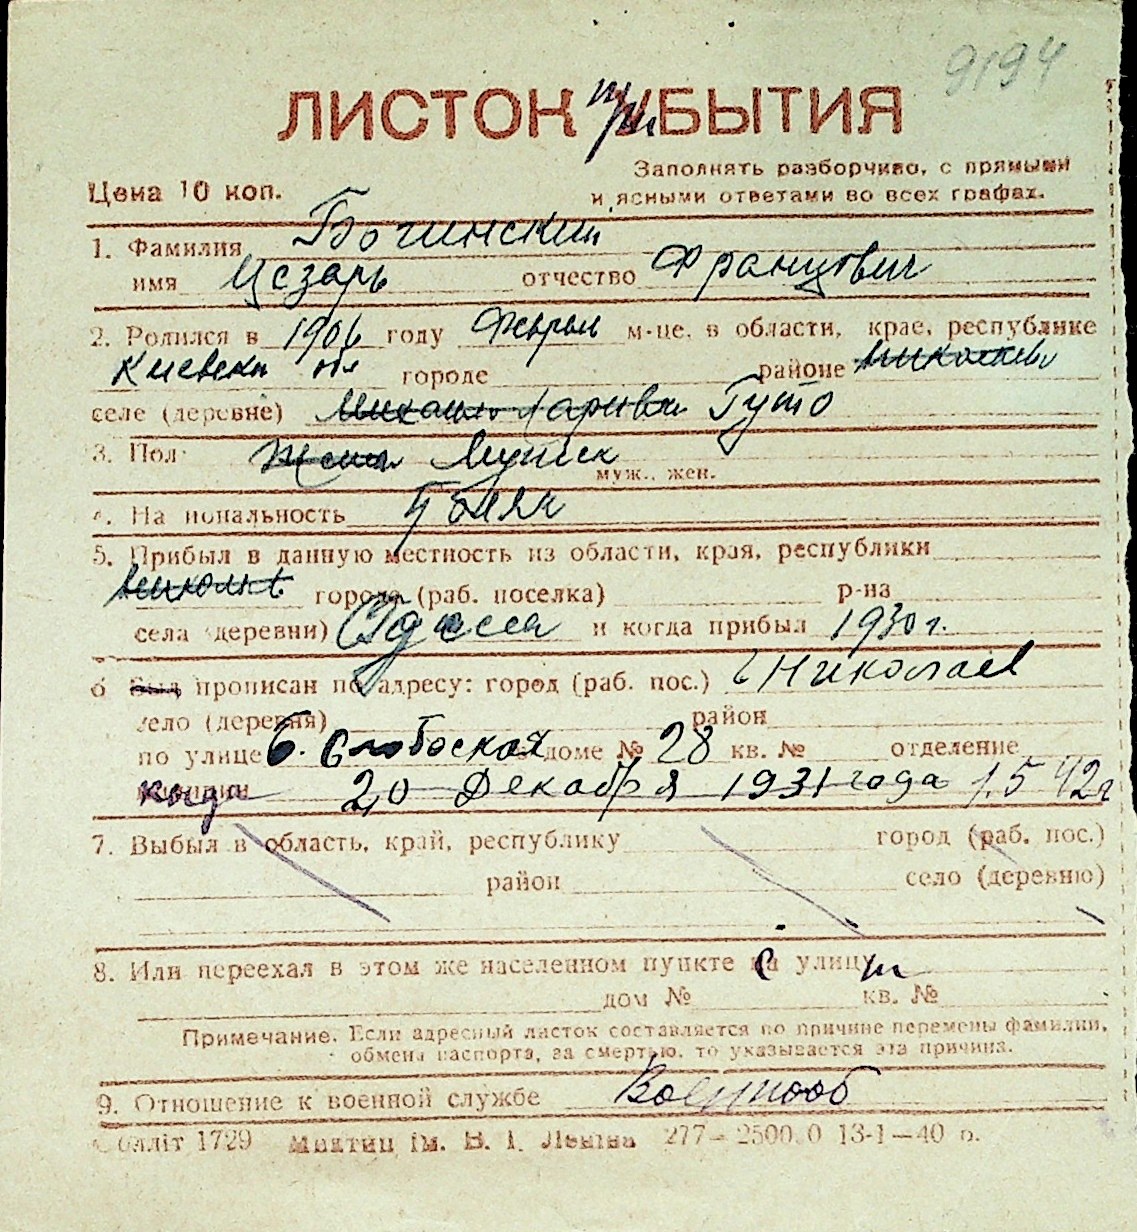 9194
ЛИСТОК УБЫТИЯ
при
Заполнять разборчиво, с прямыми
Цена 10 коп.
и ясными ответами во всех графах.
1. Фамилия Богинский
имя Цезарь отчество Францович
2. Родился в 1906 году Феврал м-це, в области, крае, республике
Киевск обл городе районе Николаев
селе (деревне) Гуто
3. Пол Жен Мужск
муж., жен.
На иональность
5. Прибыл в данную местность из области, края, республики
города (раб. поселка) р-на
села (деревни) Одесса и когда прибыл 1930 г.
6 Был прописан по адресу: город (раб. пос.) Николаев
село (деревня) район
по улице Б. Слобоская доме № 28 кв. № отделение
когда 20 Декабря 1931 года 1.5 42 г
7. Выбыл в область, край, республику город (раб. пос.)
район село (деревню)
8. Или переехал в этом же населенном пункте на улицу
дом № кв. №
Примечание. Если адресный листок составляется по причине перемены фамилии,
обмена паспорта, за смертью, то указывается эта причина.
9. Отношение к военной службе Военнооб
бліт 1729 ім. В. І. Леніна 277— 13-1—40 р.